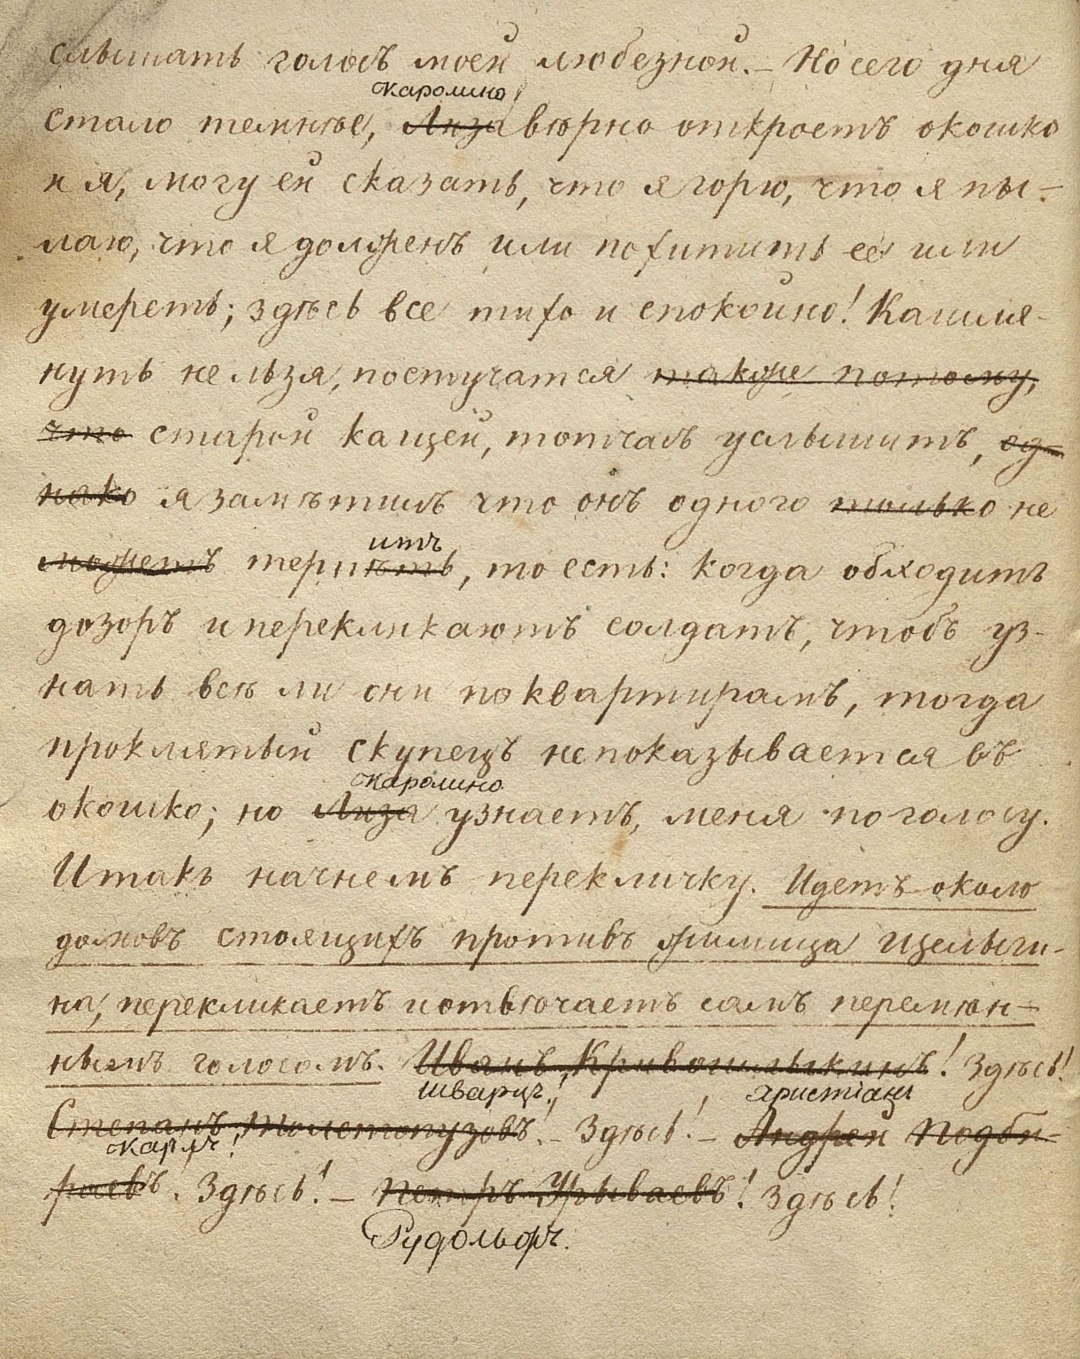 слышать голосъ моей любезной. – Но сего дня
Каролина
стало темнѣе, Лиза вѣрно откроетъ окошко
и я, могу ей сказать, что я горю, что я пы-
лаю, что я долженъ или похитить её или
умереть; здѣсь все тихо и спокойно! Кашля-
нуть нельзя, постучатся также потому,
что старой кащей, тотчасъ услышитъ, од-
нако я замѣтилъ что онъ одного только не
итъ
можетъ терпѣть, то есть: когда обходитъ
дозоръ и перекликаютъ солдатъ, чтобъ уз-
нать всѣ ли они по квартирамъ, тогда
проклятый скупецъ не показывается въ
Каролина
окошко; но Лиза узнаетъ, меня по голосу.
Итакъ начнемъ перекличку. Идетъ около
домовъ стоящихъ противъ жилища Щелыги-
на, перекликаетъ и отвѣчаетъ самъ перемѣн-
нымъ голосомъ. Иванъ Кривошлыкинъ! Здѣсь!
Шварцъ! Христіанъ
Степанъ Толстопузовъ. – Здѣсь! – Андрей Подби-
Карлъ!
раевъ. Здѣсь! – Петръ Урываевъ! Здѣсь!
Рудольфъ.